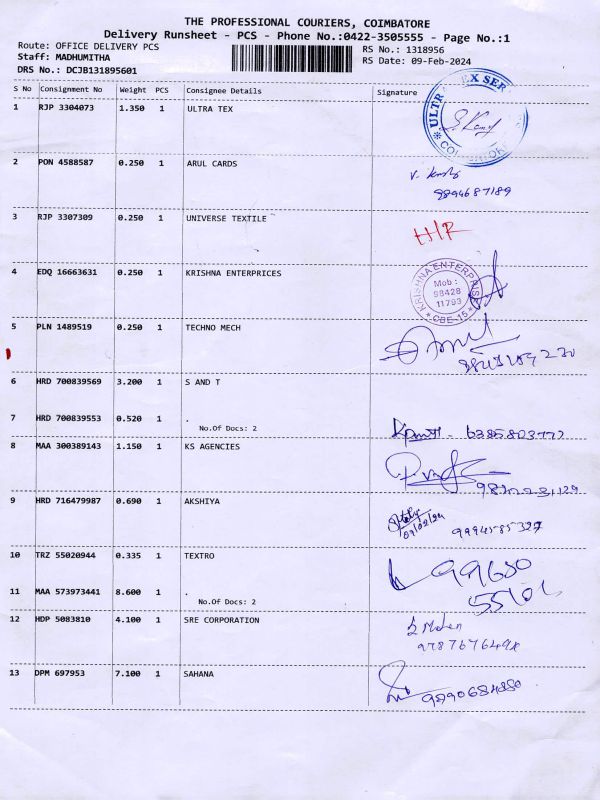 THE PROFESSIONAL COURIERS, COIMBATORE
Delivery Runsheet - PCS - Phone No.:0422-3505555 - Page No.:1
Route: OFFICE DELIVERY PCS
Staff: MADHUMITHA
DRS No.: DCJB131895601
RS No.: 1318956
RS Date: 09-Feb-2024
S No Consignment No Weight PCS Consignee Details Signature
1 RJP 3304073 1.350 1 ULTRA TEX
2 PON 4588587 0.250 1 ARUL CARDS
9894687189
3 RJP 3307309 0.250 1 UNIVERSE TEXTILE
H/R
4 EDQ 16663631 0.250 1 KRISHNA ENTERPRICES
KRISHNA ENTERPRISES
Mob :
98428
11793
* CBE-15 *
5 PLN 1489519 0.250 1 TECHNO MECH
6 HRD 700839569 3.200 1 S AND T
7 HRD 700839553 0.520 1 .
No.Of Docs: 2
8 MAA 300389143 1.150 1 KS AGENCIES
9 HRD 716479987 0.690 1 AKSHIYA
09/02/24
9994585327
10 TRZ 55020944 0.335 1 TEXTRO
99650
11 MAA 573973441 8.600 1 .
No.Of Docs: 2
12 HDP 5083810 4.100 1 SRE CORPORATION
S Mohan
13 DPM 697953 7.100 1 SAHANA